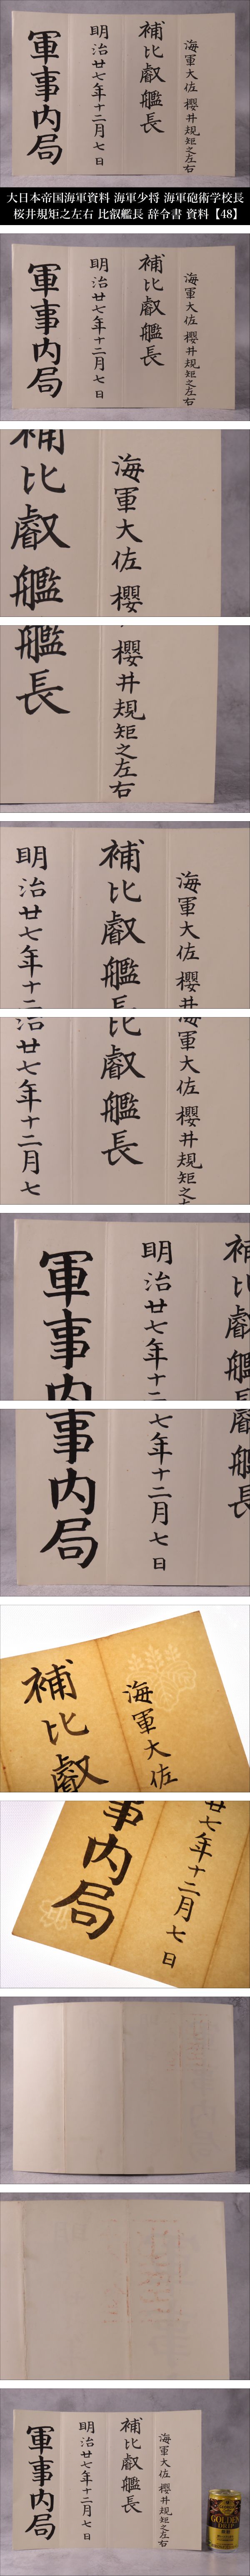 海軍大佐 櫻井規矩之左右
補比叡艦長
明治廿七年十二月七日
軍事内局
大日本帝国海軍資料 海軍少将 海軍砲術学校長
桜井規矩之左右 比叡艦長 辞令書 資料【48】
海軍大佐 櫻井規矩之左右
補比叡艦長
明治廿七年十二月七日
軍事内局
海軍大佐 櫻
補比叡艦
櫻井規矩之左右
艦長
海軍大佐 櫻井
補比叡艦長
明治廿七年十二
海軍大佐 櫻井規矩之
比叡艦長
治廿七年十二月七
補比叡艦長
明治廿七年十二
軍事内
叡艦長
七年十二月七日
事内局
海軍大佐
補比叡
廿七年十二月七日
事内局
海軍大佐 櫻井規矩之左右
補比叡艦長
明治廿七年十二月七日
軍事内局
GOLD